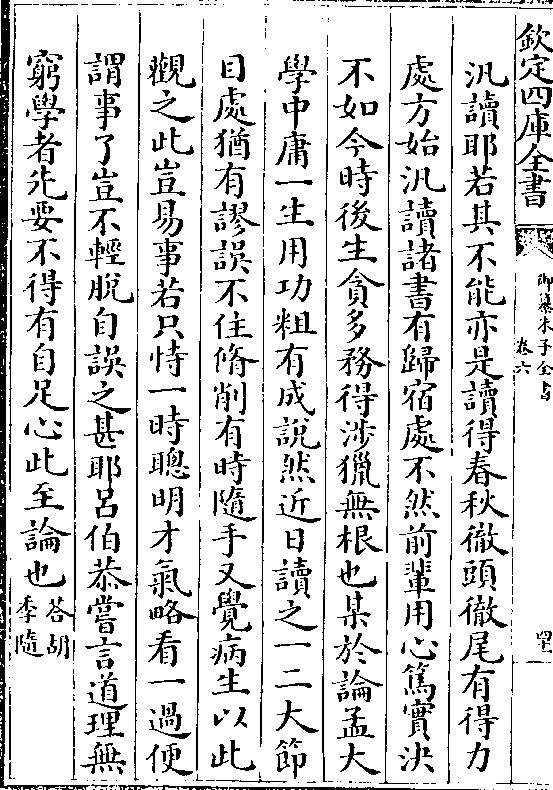 欽定四庫全書
御纂朱子全書
卷六
汎讀耶若其不能亦是讀得春秋徹頭徹尾有得力
處方始汎讀諸書有歸宿處不然前輩用心篤實決
不如今時後生貪多務得涉獵無根也某於論孟大
學中庸一生用功粗有成說然近日讀之一二大節
目處猶有謬誤不住脩削有時隨手又覺病生以此
觀之此豈易事若只恃一時聰明才氣略看一過便
謂事了豈不輕脫自誤之甚耶呂伯恭嘗言道理無
窮學者先要不得有自足心此至論也
荅胡
季隨